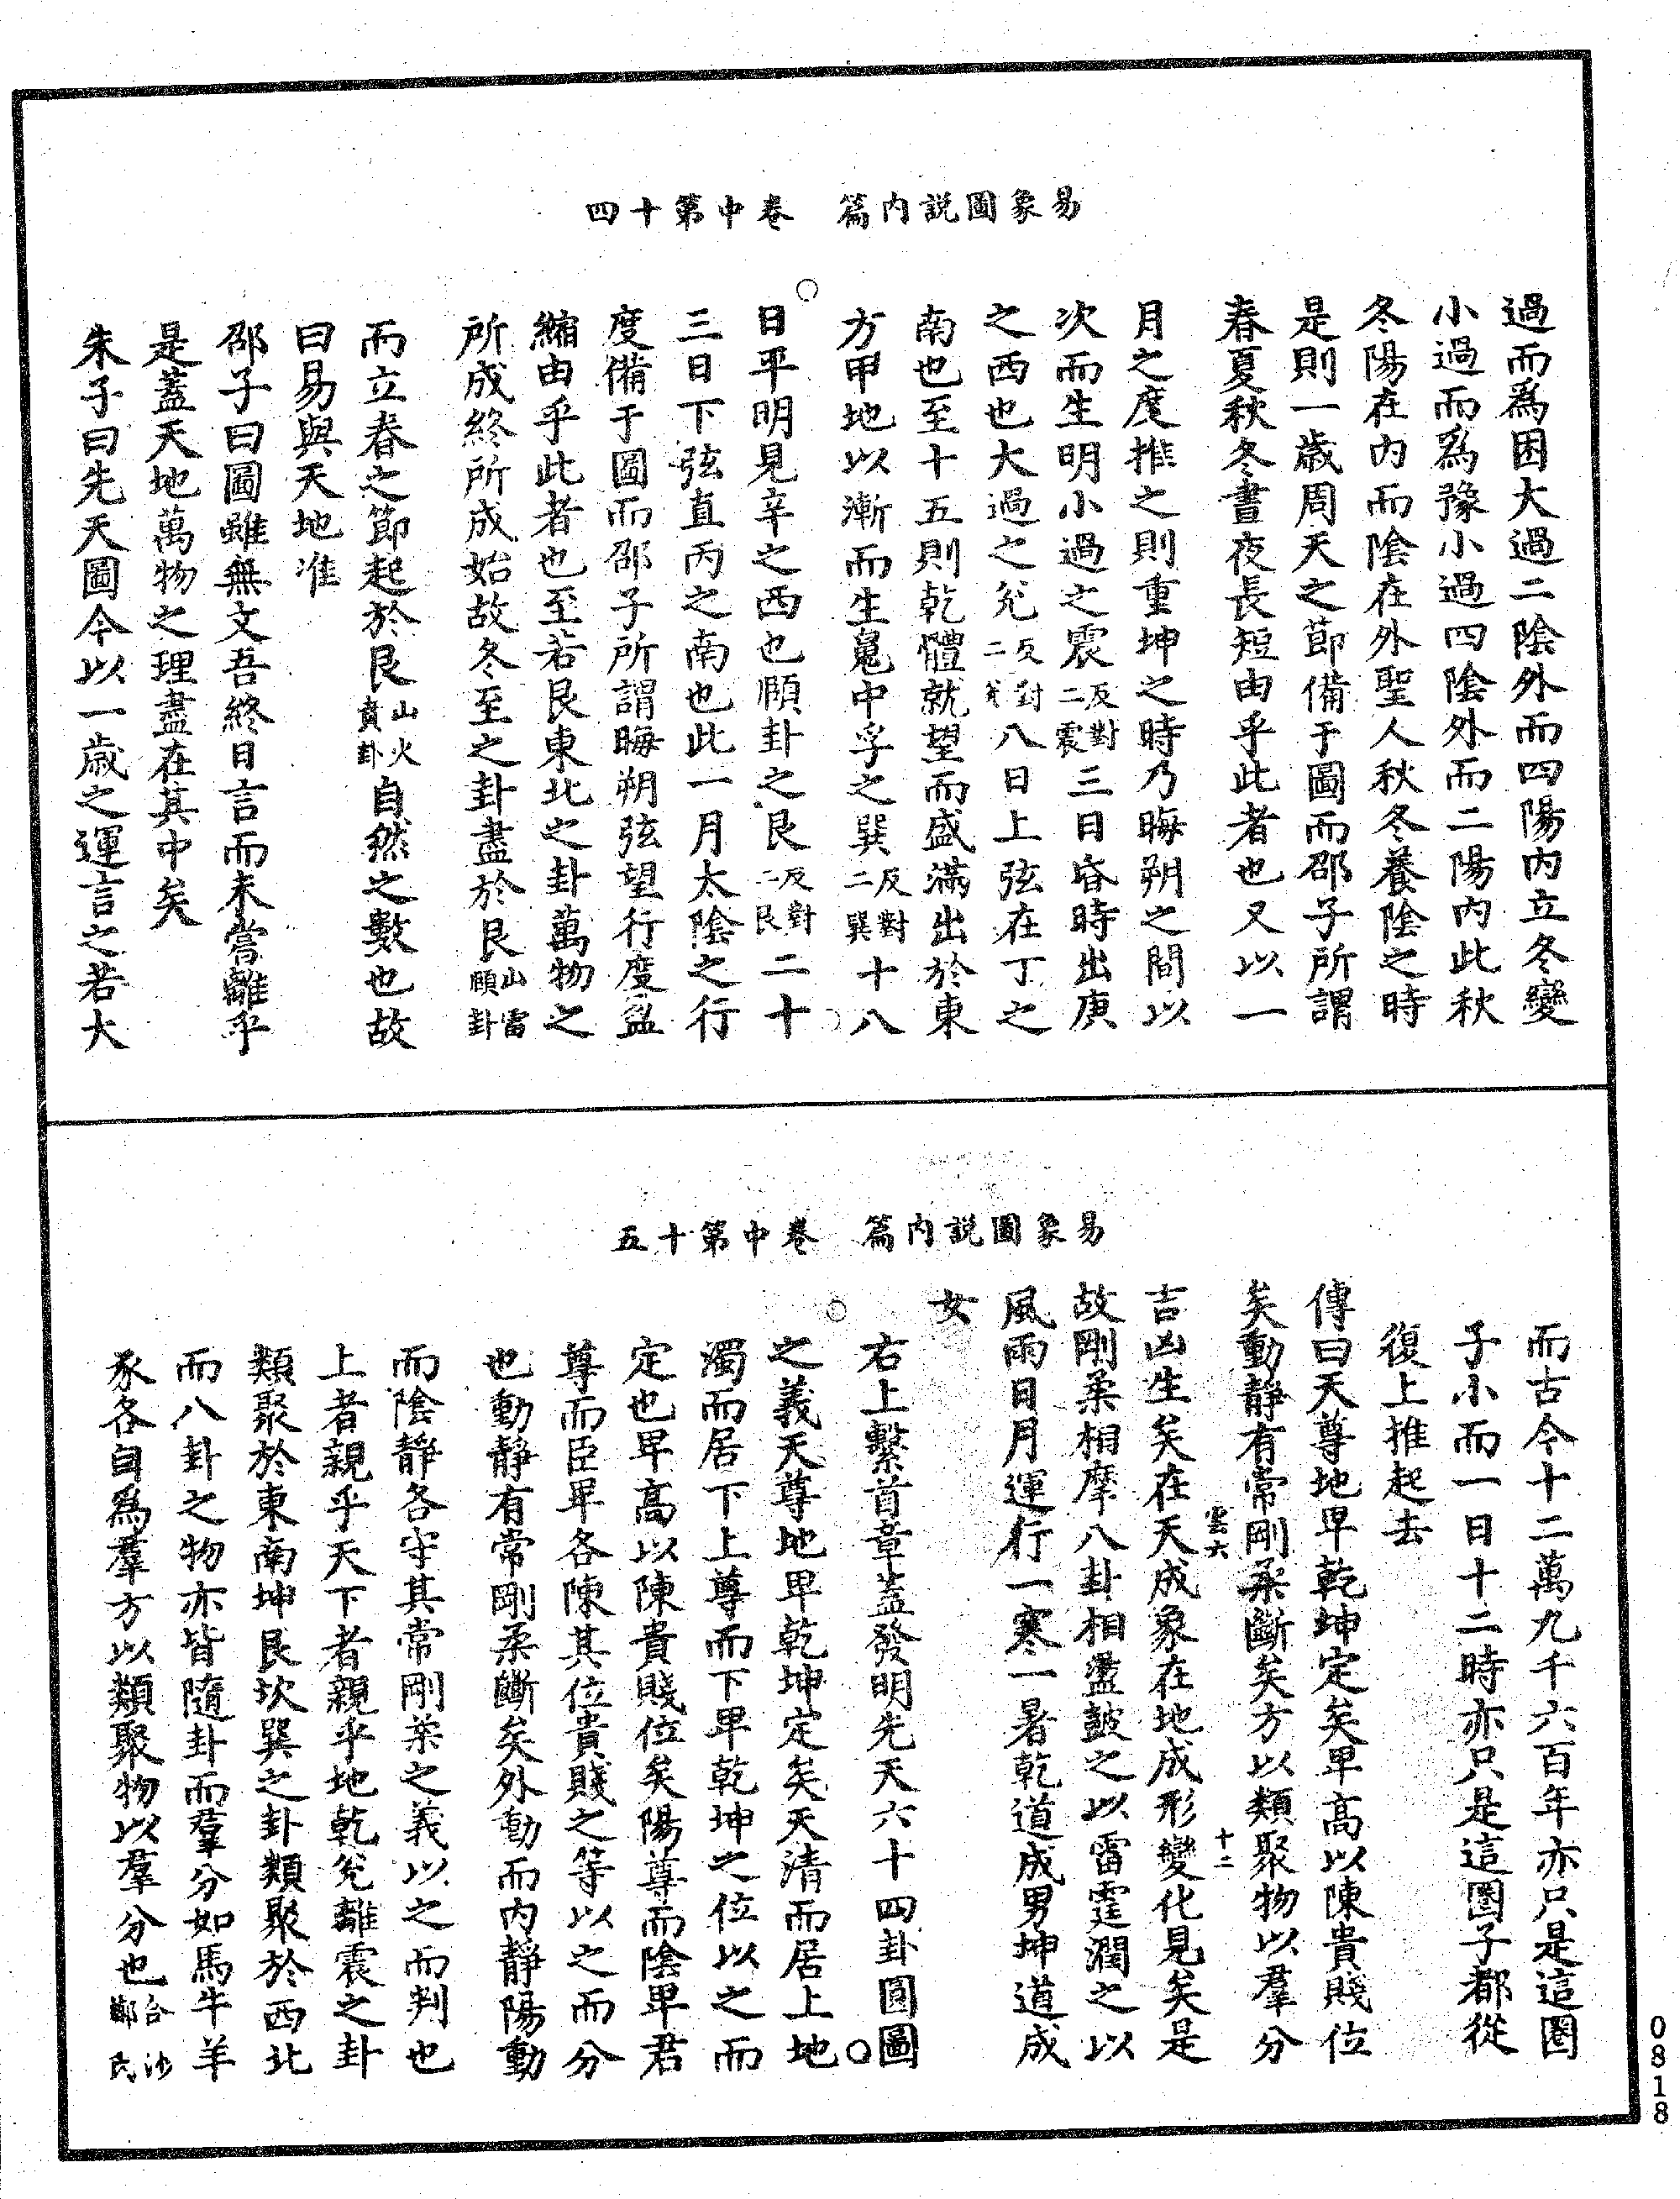 易象圖説内篇　卷中第十四
過而爲困大過二陰外而四陽内立冬變
小過而爲豫小過四陰外而二陽内此秋
冬陽在内而陰在外聖人秋冬養陰之時
是則一歲周天之節備于圖而邵子所謂
春夏秋冬晝夜長短由乎此者也又以一
月之度推之則重坤之時乃晦朔之間以
次而生明小過之震反對二震三日昏時出庚
之西也大過之兌反對二兌八日上弦在丁之
南也至十五則乾體就望而盛滿出於東
方甲地以漸而生䰟中孚之巽反對二巽十八
日平明見辛之西也頤卦之艮反對二艮二十
三日下弦直丙之南也此一月太陰之行
度備于圖而邵子所謂晦朔弦望行度盈
縮由乎此者也至若艮東北之卦萬物之
所成終所成始故冬至之卦盡於艮山雷頤卦
而立春之節起於艮山火賁卦自然之數也故
曰易與天地准
邵子曰圖雖無文吾終日言而未嘗離乎
是蓋天地萬物之理盡在其中矣
朱子曰先天圖今以一歲之運言之若大
易象圖説内篇　卷中第十五
而古今十二萬九千六百年亦只是這圏
子小而一日十二時亦只是這圏子都從
復上推起去
傳曰天尊地卑乾坤定矣卑高以陳貴賤位
矣動靜有常剛柔斷矣方以類聚物以羣分
雲六　十二
吉凶生矣在天成象在地成形變化見矣是
故剛柔相摩八卦相盪鼓之以雷霆潤之以
風雨日月運行一寒一暑乾道成男坤道成
女
右上繫首章蓋發明先天六十四卦圓圖
之義天尊地卑乾坤定矣天清而居上地
濁而居下上尊而下卑乾坤之位以之而
定也卑高以陳貴賤位矣陽尊而陰卑君
尊而臣卑各陳其位貴賤之等以之而分
也動靜有常剛柔斷矣外動而内靜陽動
而陰靜各守其常剛柔之義以之而判也
上者親乎天下者親乎地乾兌離震之卦
類聚於東南坤艮坎巽之卦類聚於西北
而八卦之物亦皆隨卦而羣分如馬牛羊
豕各自爲羣方以類聚物以羣分也合沙鄭氏
0818